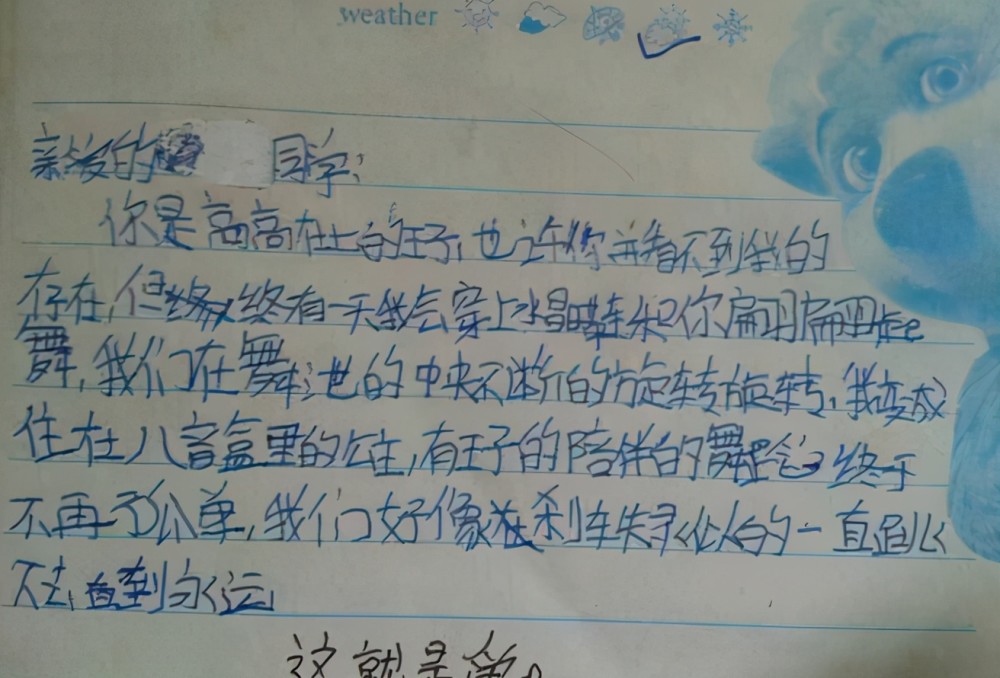 weather
亲爱的 同学:
你是高高在上的王子,也许你并看不到我的
存在,但终有一天我会穿上水晶鞋和你翩翩起
舞,我们在舞池的中央不断的旋转旋转,我变成
住在八音盒里的公主,有王子的陪伴的舞 终于
不再孤单,我们好像在刹车失灵似的一直
不去,直到永远
这就是